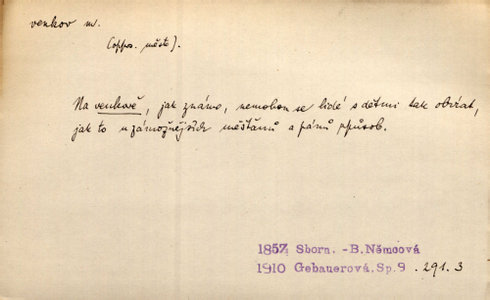 venkov m.
(oppos. město).
Na venkově, jak známo, nemohou se lidé s dětmi tak obírat,
jak to u zámožnějších měšťanů a pánů způsob.
1857 Sborn. -B.Němcová
1910 Gebauerová, Sp.9 .291.3